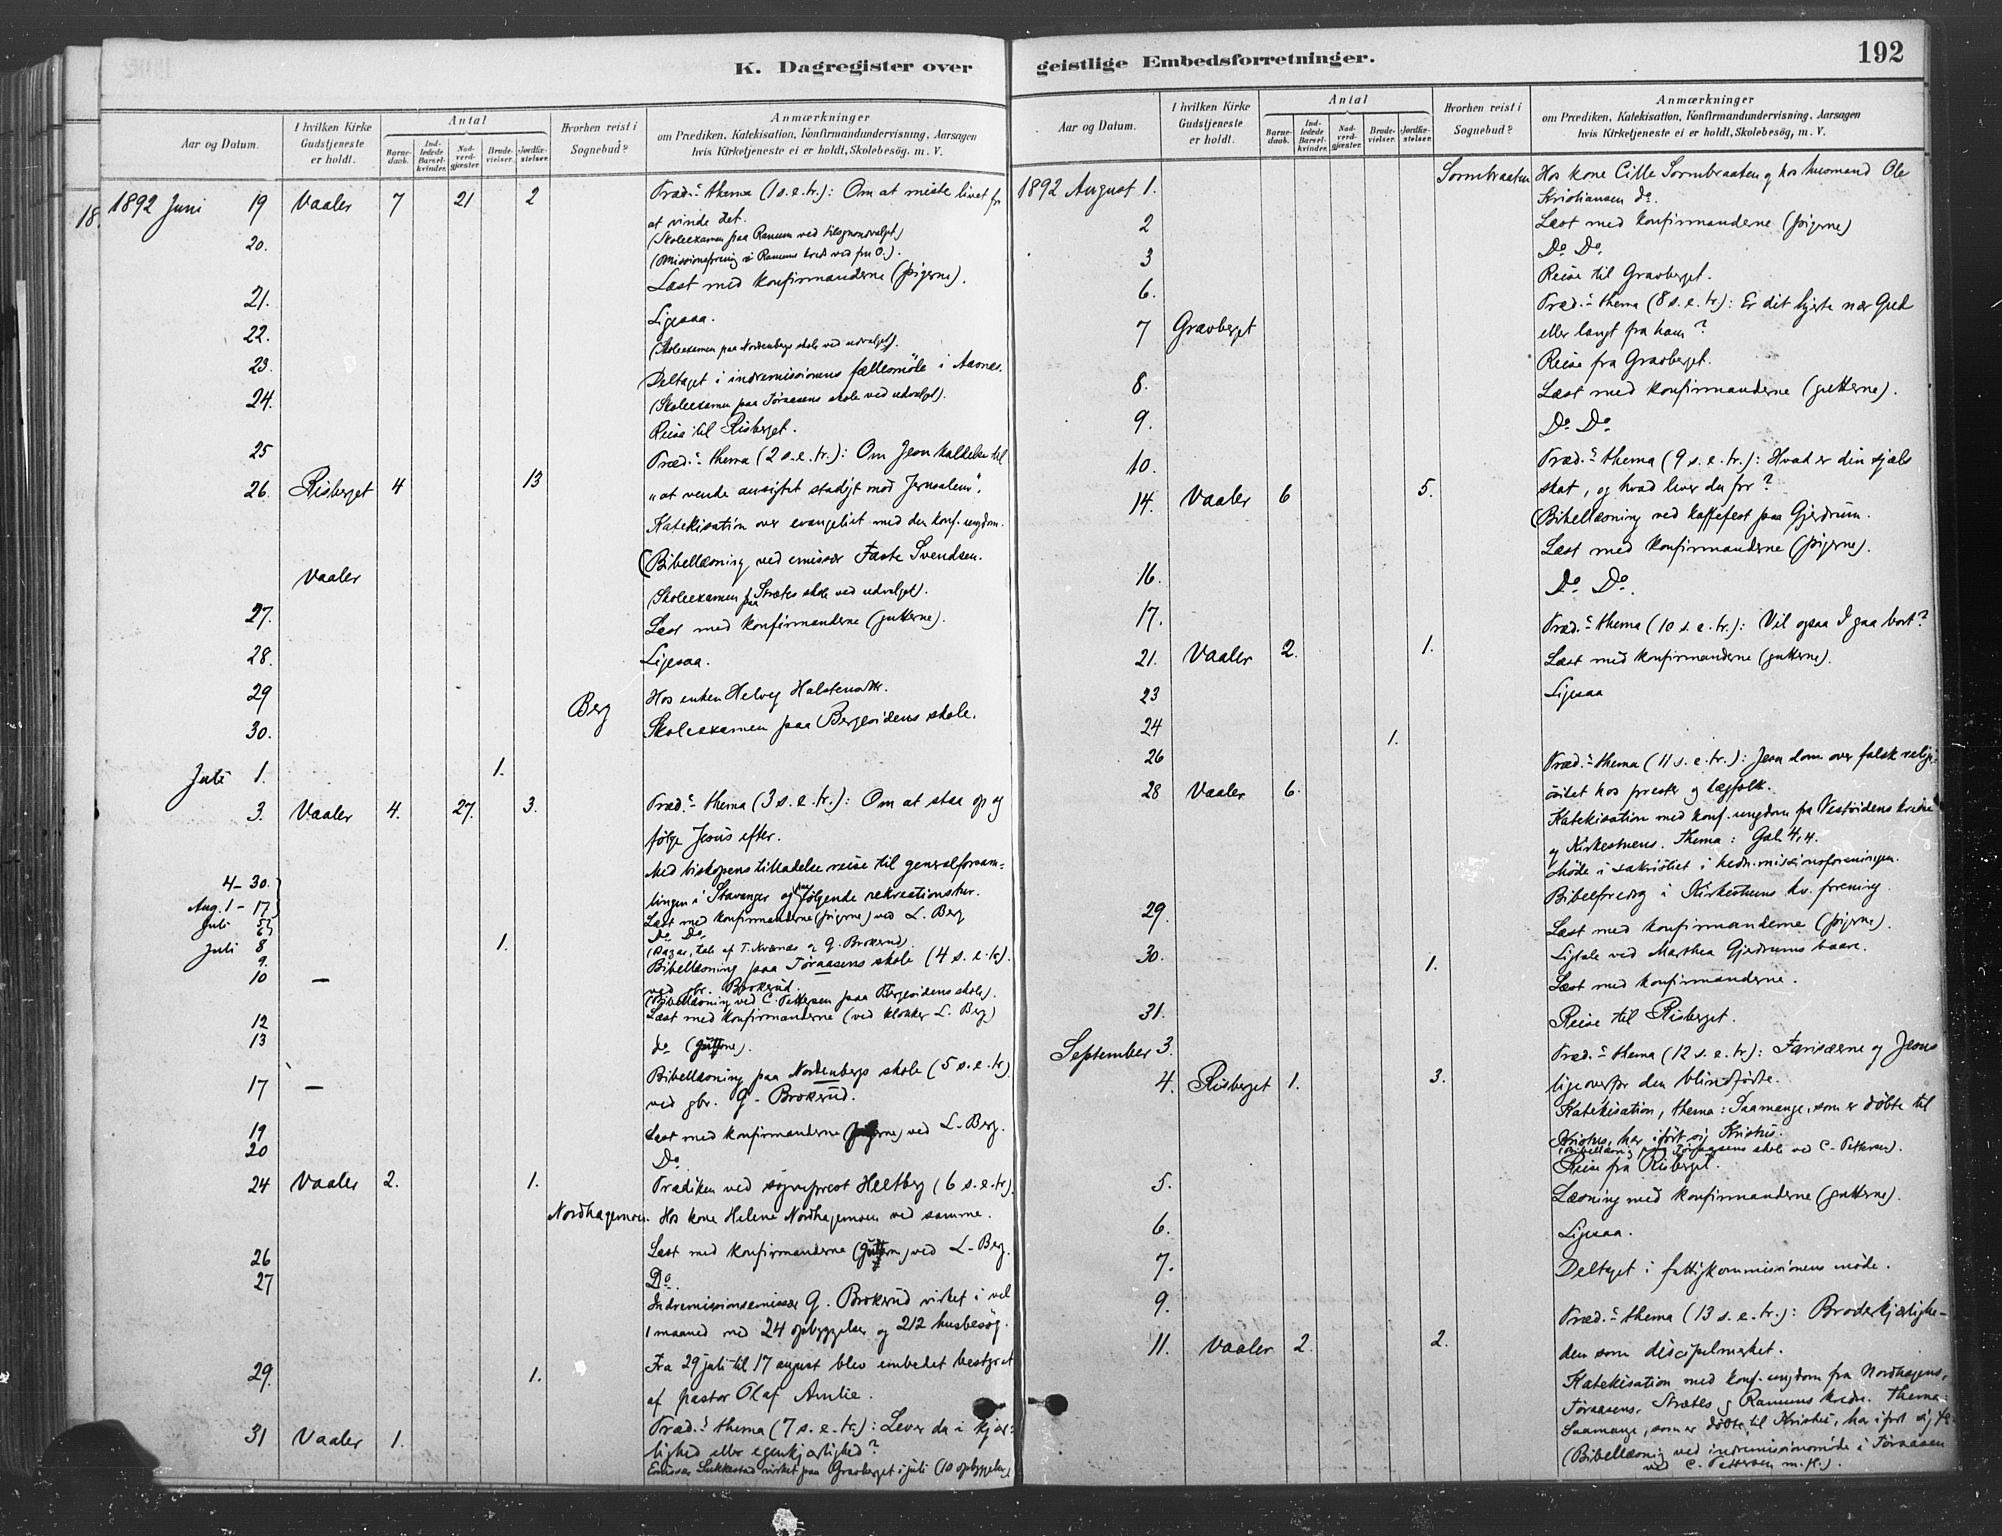 K. Dagregister over
Aar og Datum.
I hvilken Kirke
Gudstjeneste
er holdt.
Antal
Barne-
daab.
Ind-
ledede
Barsel-
kvinder.
Nad-
verd-
gjæster.
Brude-
vielser.
Jordfæ-
stelser.
Hvorhen reist i
Sognebud?
Anmærkninger
om Prædiken, Katekisation, Konfirmandundervisning, Aarsagen
hvis Kirketjeneste ei er holdt, Skolebesög. m. V.
18.
1892 Juni 19 Vaaler 7 21 2 Præd.s thema (1 s. e. tr.): Om at miste livet for
at vinde det.
20. (Skoleexamen paa Ramum ved tilsynsudvalget)
(Missionsforening i Ramums kreds ved fru O.).
21. Læst med konfirmanderne (pigerne).
22. Ligesaa.
23 (Skoleexamen paa Nordenbergs skole ved udvalget).
24. Deltaget i indremissionens fællesmöde i Aasnes.
(Skoleexamen paa Töraasens skole ved udvalget).
25 Reise til Risberget.
26. Risberget 4 13 Præd.s thema (2 s. e. tr.): Om Jesu kaldelse til
"at vende ansigtet stadigt mod Jerusalem".
Katekisation over evangeliet med den konf. ungdom.
Vaaler (Bibellæsning ved emissær Faste Svendsen.
27. Skoleexamen paa Strætes skole ved udvalget).
28. Læst med konfirmanderne (gutterne).
29 Ligesaa.
30. Berg Hos enken Helvig Halstensdtr.
Skoleexamen paa Bergesidens skole.
Juli 1. 1.
3. Vaaler 4. 27. 3. Præd.s thema (3 s. e. tr.): Om at staa op og
fölge Jesus efter.
4-30. Med biskopens tilladelse reise til generalforsam-
Aug. 1 - 17 lingen i Stavanger og paafölgende rekreationstur.
Juli 5 Læst med konfirmanderne (pigerne) ved L. Berg
6 Do Do
Juli 8 1.
9. (Bazar, tale af T. Kværnæs og G. Brokerud)
10 — Bibellæsning paa Töraasens skole (4 s. e. tr.).
ved gbr. Brokerud.
(Bibellæsning ved C. Pettersen paa Bergesidens skole).
12 Læst med konfirmanderne (ved klokker L. Berg)
13 do (gutterne).
17 — Bibellæsning paa Nordenbergs skole (5 s. e. tr.)
ved gbr. G. Brokerud.
19 Læst med konfirmanderne (pigerne) ved L. Berg.
20 Do
24 Vaaler 2. 1. Prædiken ved sogneprest Heltberg (6 s. e. tr.).
Nordhagemoen. Hos kone Helene Nordhagemoen ved samme.
26 Læst med konfirmanderne (gutterne) ved L. Berg.
27 Do.
Indremissionsemissær G. Brokerud virket i vel
1 maaned med 24 opbyggelser og 212 husbesög.
29. 1. Fra 29 juli til 17 august blev embedet bestyret
af pastor Olaf Amlie.
31 Vaaler 1. Præd.s thema (7 s. e. tr.): Lever du i kjær-
lighed eller egenkjærlighed?
Emissær Lukkestad virket paa Gravberget i juli (10 opbyggelser)
geistlige Embedsforretninger.
192
Aar og Datum.
I hvilken Kirke
Gudstjeneste
er holdt.
Antal
Barne-
daab.
Ind-
ledede
Barsel-
kvinder.
Nad-
verd-
gjæster.
Brude-
vielser.
Jordfæ-
stelser.
Hvorhen reist i
Sognebud?
Anmærkninger
om Prædiken, Katekisation, Konfirmandundervisning, Aarsagen
hvis Kirketjeneste ei er holdt, Skolebesög, m. V.
1892 August 1. Sormbraaten Hos kone Cille Sormbraaten og hos husmand Ole
Kristiansen do.
2 Læst med konfirmanderne (pigerne)
3 Do Do
6. Reise til Gravberget.
7 Gravberget Præd.s thema (8 s. e. tr.): Er dit hjerte nær Gud
eller langt fra ham?
8. Reise fra Gravberget.
9. Læst med konfirmanderne (gutterne).
10. Do Do
14. Vaaler 6 5. Præd.s thema (9 s. e. tr.): Hvad er din sjæls
skat, og hvad lever du for?
(Bibellæsning ved kaffefest paa Gjerdrum.
16. Læst med konfirmanderne (pigerne).
17. Do Do.
21. Vaaler 2. 1. Præd.s thema (10 s. e. tr.): Vil ogsaa I gaa bort?
23 Læst med konfirmanderne (gutterne).
24 Ligesaa
26 1.
28 Vaaler 6. Præd.s thema (11 s. e. tr.): Jesu dom over falsk religi-
ösitet hos prester og lægfolk.
Katekisation med konf. ungdom fra Vestsidens kredse
og Kirkestuens. Thema: Gal. 4,4.
Möde i sakristiet i hedn.missionsforeningen.
29. Bibelforedrag i Kirkestuens kv. forening.
30. Læst med konfirmanderne (pigerne).
1. Ligtale ved Marthea Gjerdrums baare.
31. Læst med konfirmanderne.
September 3. Reise til Risberget.
4. Risberget 1. 3. Præd.s thema (12 s. e. tr.): Farisæerne og Jesus
ligeoverfor den blindfödte.
Katekisation, thema: Saamange, som er döbte til
Kristus, har iført sig Kristus.
(Bibellæsning paa Töraasens skole ved C. Pettersen).
5. Reise fra Risberget.
6. Læsning med konfirmanderne (gutterne).
7. Ligesaa.
9. Deltaget i fattigkommissionens möde.
11. Vaaler 2. 2. Præd.s thema (13 s. e. tr.): Broderkjærlighe-
den som discipelmerket.
Katekisation med konf. ungdom fra Nordhagens,
Töraasens, Strætes og Ramums kredse. Thema:
Saamange, som er döbte til Kristus, har iført sig Kr.
(Bibellæsning ved indremissionsmöde i Töraasen
ved C. Pettersen m. fl.).